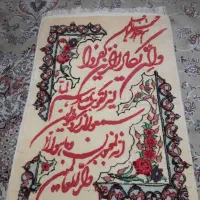 وان یکاد الذین کفروا
لیزلقونک بابصارهم لما
سمعوا الذکر و یقولون
انه لمجنون و ما هو الا
ذکر للعالمین